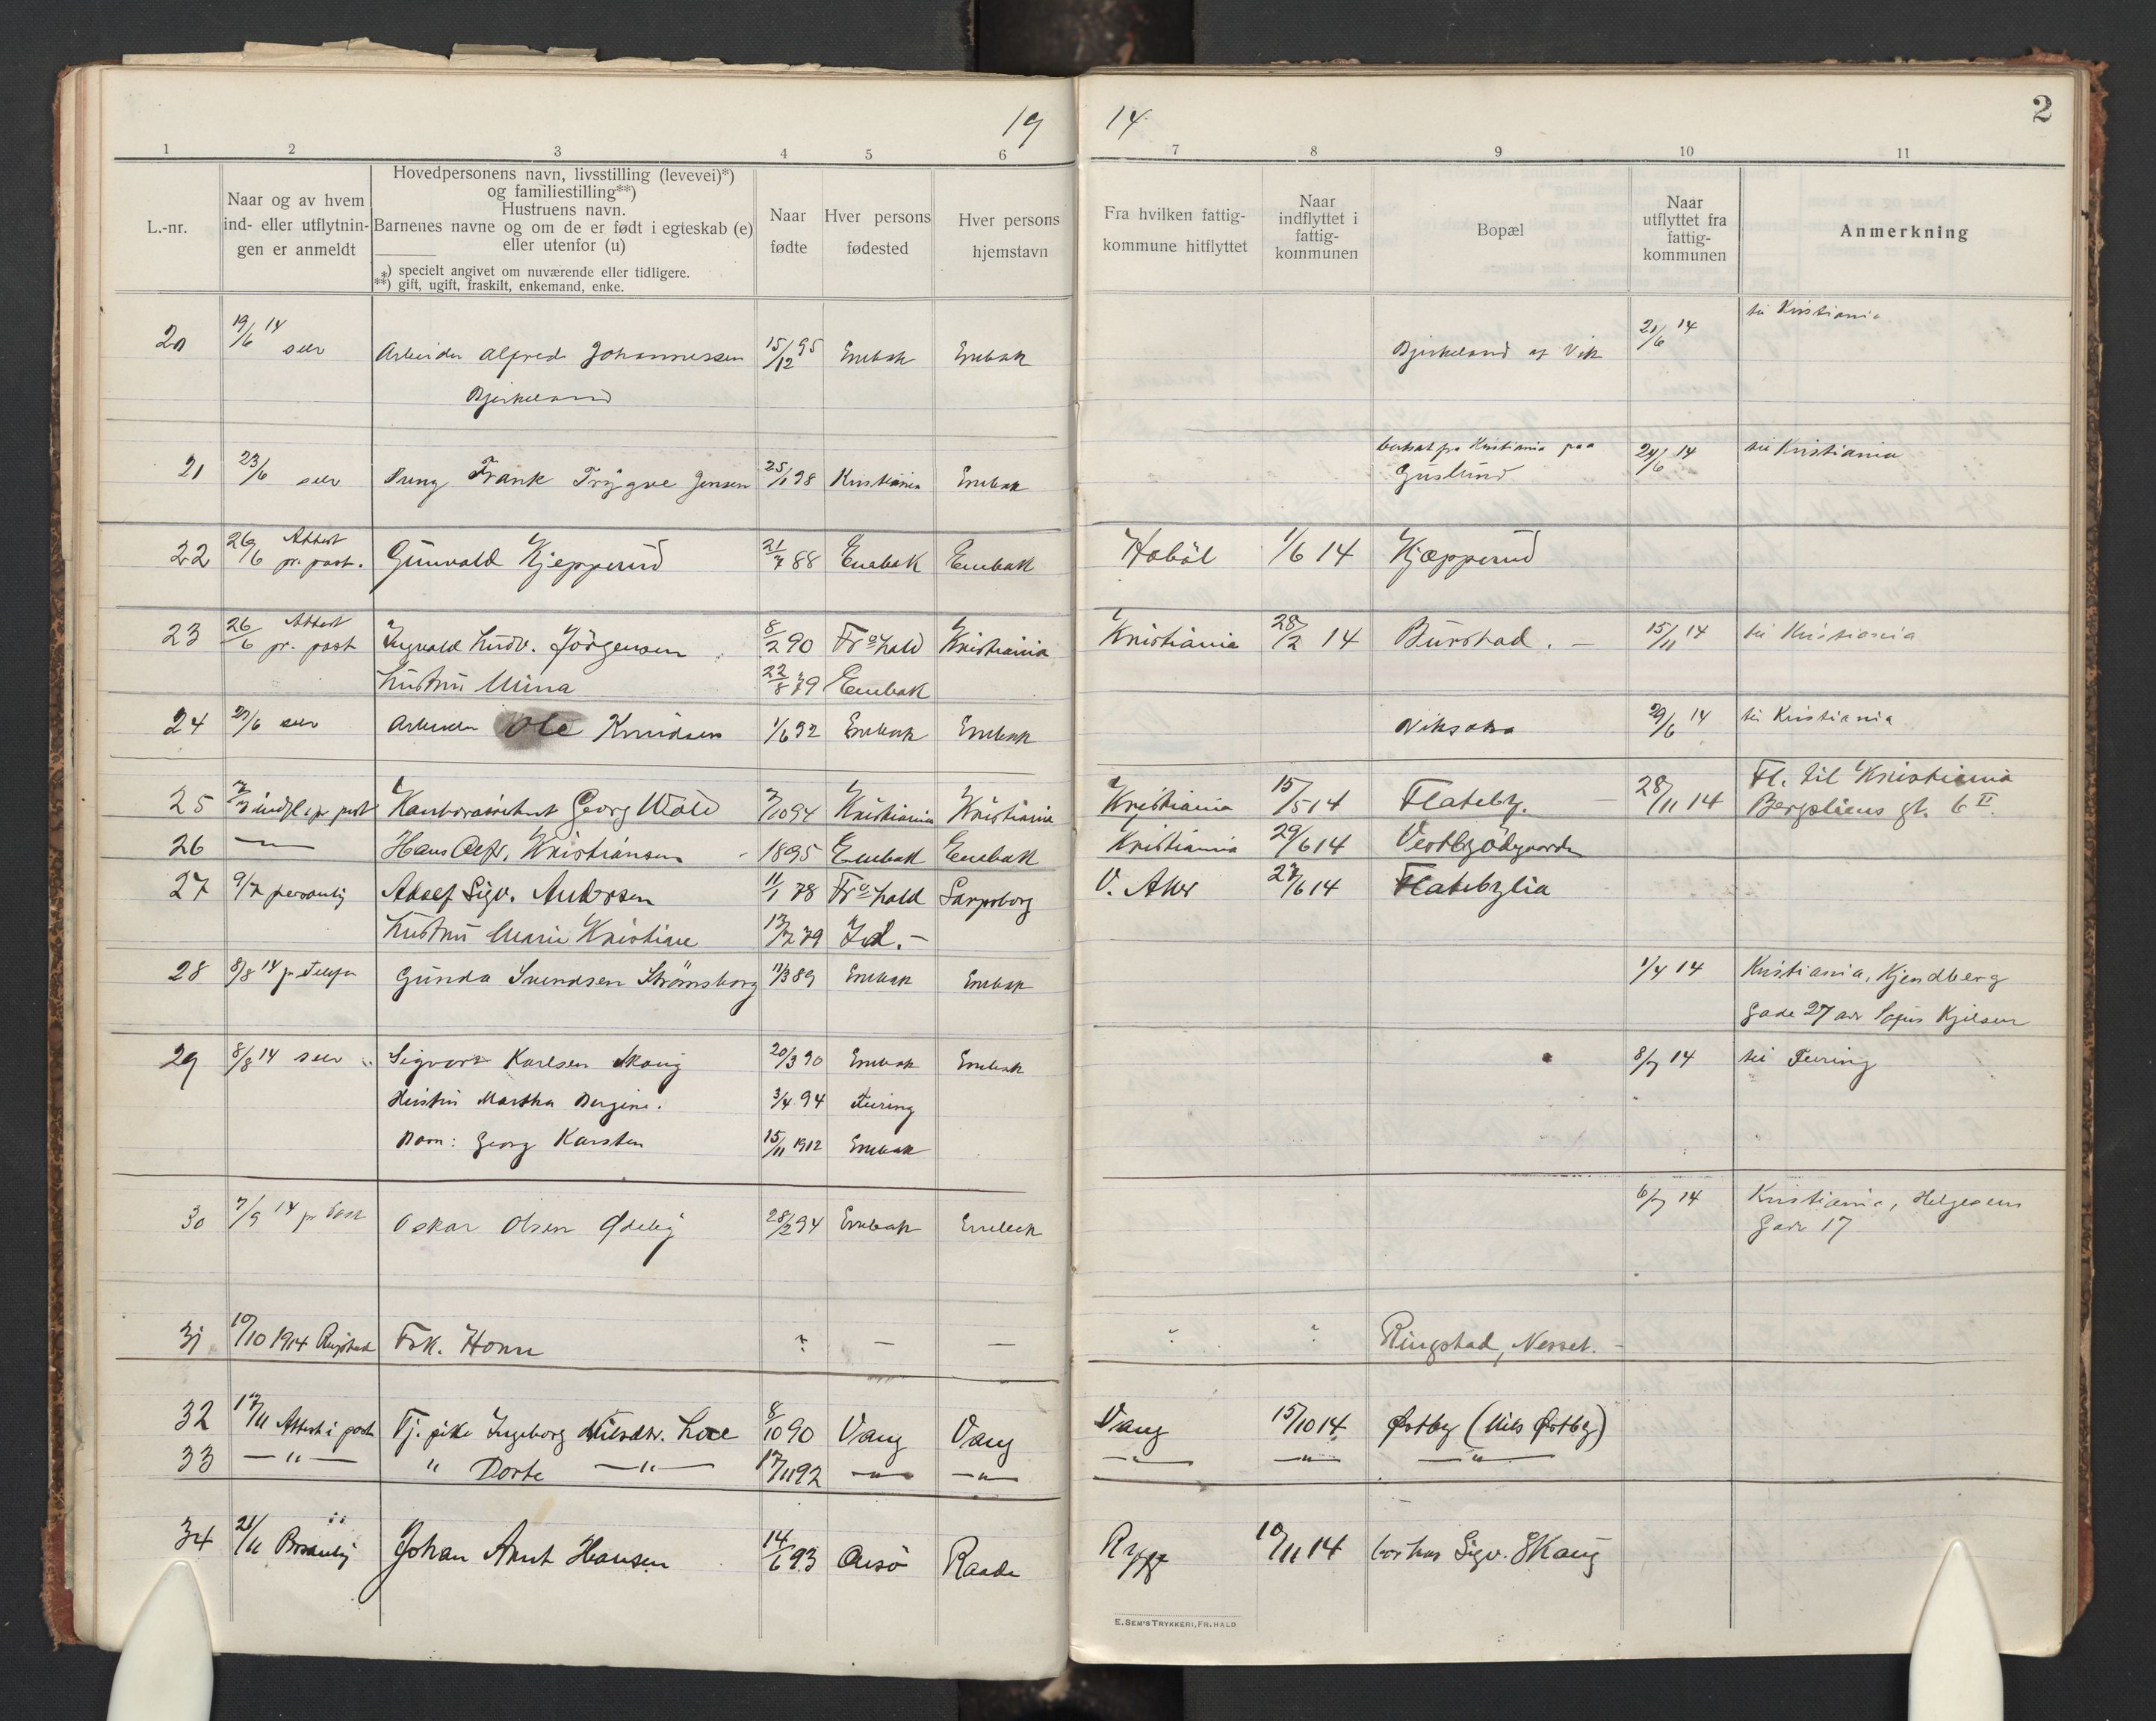 19 14
2
1 2 3 4 5 6 7 8 9 10 11
L.-nr.
Naar og av hvem
ind- eller utflytnin-
gen er anmeldt
Hovedpersonens navn, livsstilling (levevei)*)
og familiestilling**)
Hustruens navn.
Barnenes navne og om de er født i egteskab (e)
eller utenfor (u)
*) specielt angivet om nuværende eller tidligere.
**) gift, ugift, fraskilt, enkemand, enke.
Naar
fødte
Hver persons
fødested
Hver persons
hjemstavn
Fra hvilken fattig-
kommune hitflyttet
Naar
indflyttet i
fattig-
kommunen
Bopæl
Naar
utflyttet fra
fattig-
kommunen
Anmerkning
20 19/6 14 selv Arbeider Alfred Johannessen 15/12 95 Enebak Enebak Bjerkelund af Vik 21/6 14 til Kristiania
Bjerkelund
21 23/6 selv Dreng Frank Trygve Jensen 25/1 98 Kristiania Enebak bortsat fra Kristiania paa 24/6 14 til Kristiania
Guslund
22 26/6 Attest pr. post. Gunvald Kjepperud 21/7 88 Enebak Enebak Hobøl 1/6 14 Kjæpperud
23 26/6 Attest pr. post Ingvald Ludv. Jörgensen 8/2 90 Fr.hald Kristiania Kristiania 28/2 14 Burstad. — 15/11 14 til Kristiania
Hustru Mina 22/8 79 Enebak
24 27/6 selv Arbeider Ole Knudsen 1/6 92 Enebak Enebak Viksaka 29/6 14 til Kristiania
25 2/7 indfl. pr post Kontorassistent Georg Wold 2/10 94 Kristiania Kristiania Kristiania 15/5 14 Flateby. 28/11 14 Fl. til Kristiania
Bergsliens gt. 6 II.
26 —"— Hans Alfr. Kristiansen 1895 Enebak Enebak Kristiania 29/6 14 Vestbyödegaarden
27 9/7 personlig Adolf Sigv. Andersen 11/1 78 Fr.hald Sarpsborg V. Aker 27/6 14 Flatebylia
Hustru Marie Kristine 13/7 79 Id. —
28 8/8 14 pr Telefon Gunda Svendsen Strömsborg 11/3 89 Enebak Enebak 1/4 14 Kristiania, Kjendberg
gade 27 Kjelsen
29 8/8 14 selv Sigvart Karlsen Skaug 20/3 90 Enebak Enebak 8/7 14 til Feiring
Hustru Martha Bergine. 3/4 94 Feiring
Barn: Georg Karsten 15/11 1912 Enebak
30 7/9 14 pr Post Oskar Olsen Ødeby 28/2 94 Enebak Enebak 6/7 14 Kristiania, Helgesens
Gade 17
31 10/10 1914 Ringstad Frk. Horn ? — — ? ? Ringstad, Nesset. —
32 17/11 Attest i post Tj. pike Ingeborg Nilsdtr. Loe 8/10 90 Vang Vang Vang 15/10 14 Østby (Nils Østby)
33 —"— " Dorte —"— 17/11 92 —"— —"— —"— —"— —"—
34 21/11 Personlig Johan Arnt Hansen 14/6 93 Onsö Raade Rygge 10/11 14 bor hos Sigv. Skaug
E. SEM'S TRYKKERI, FR.HALD